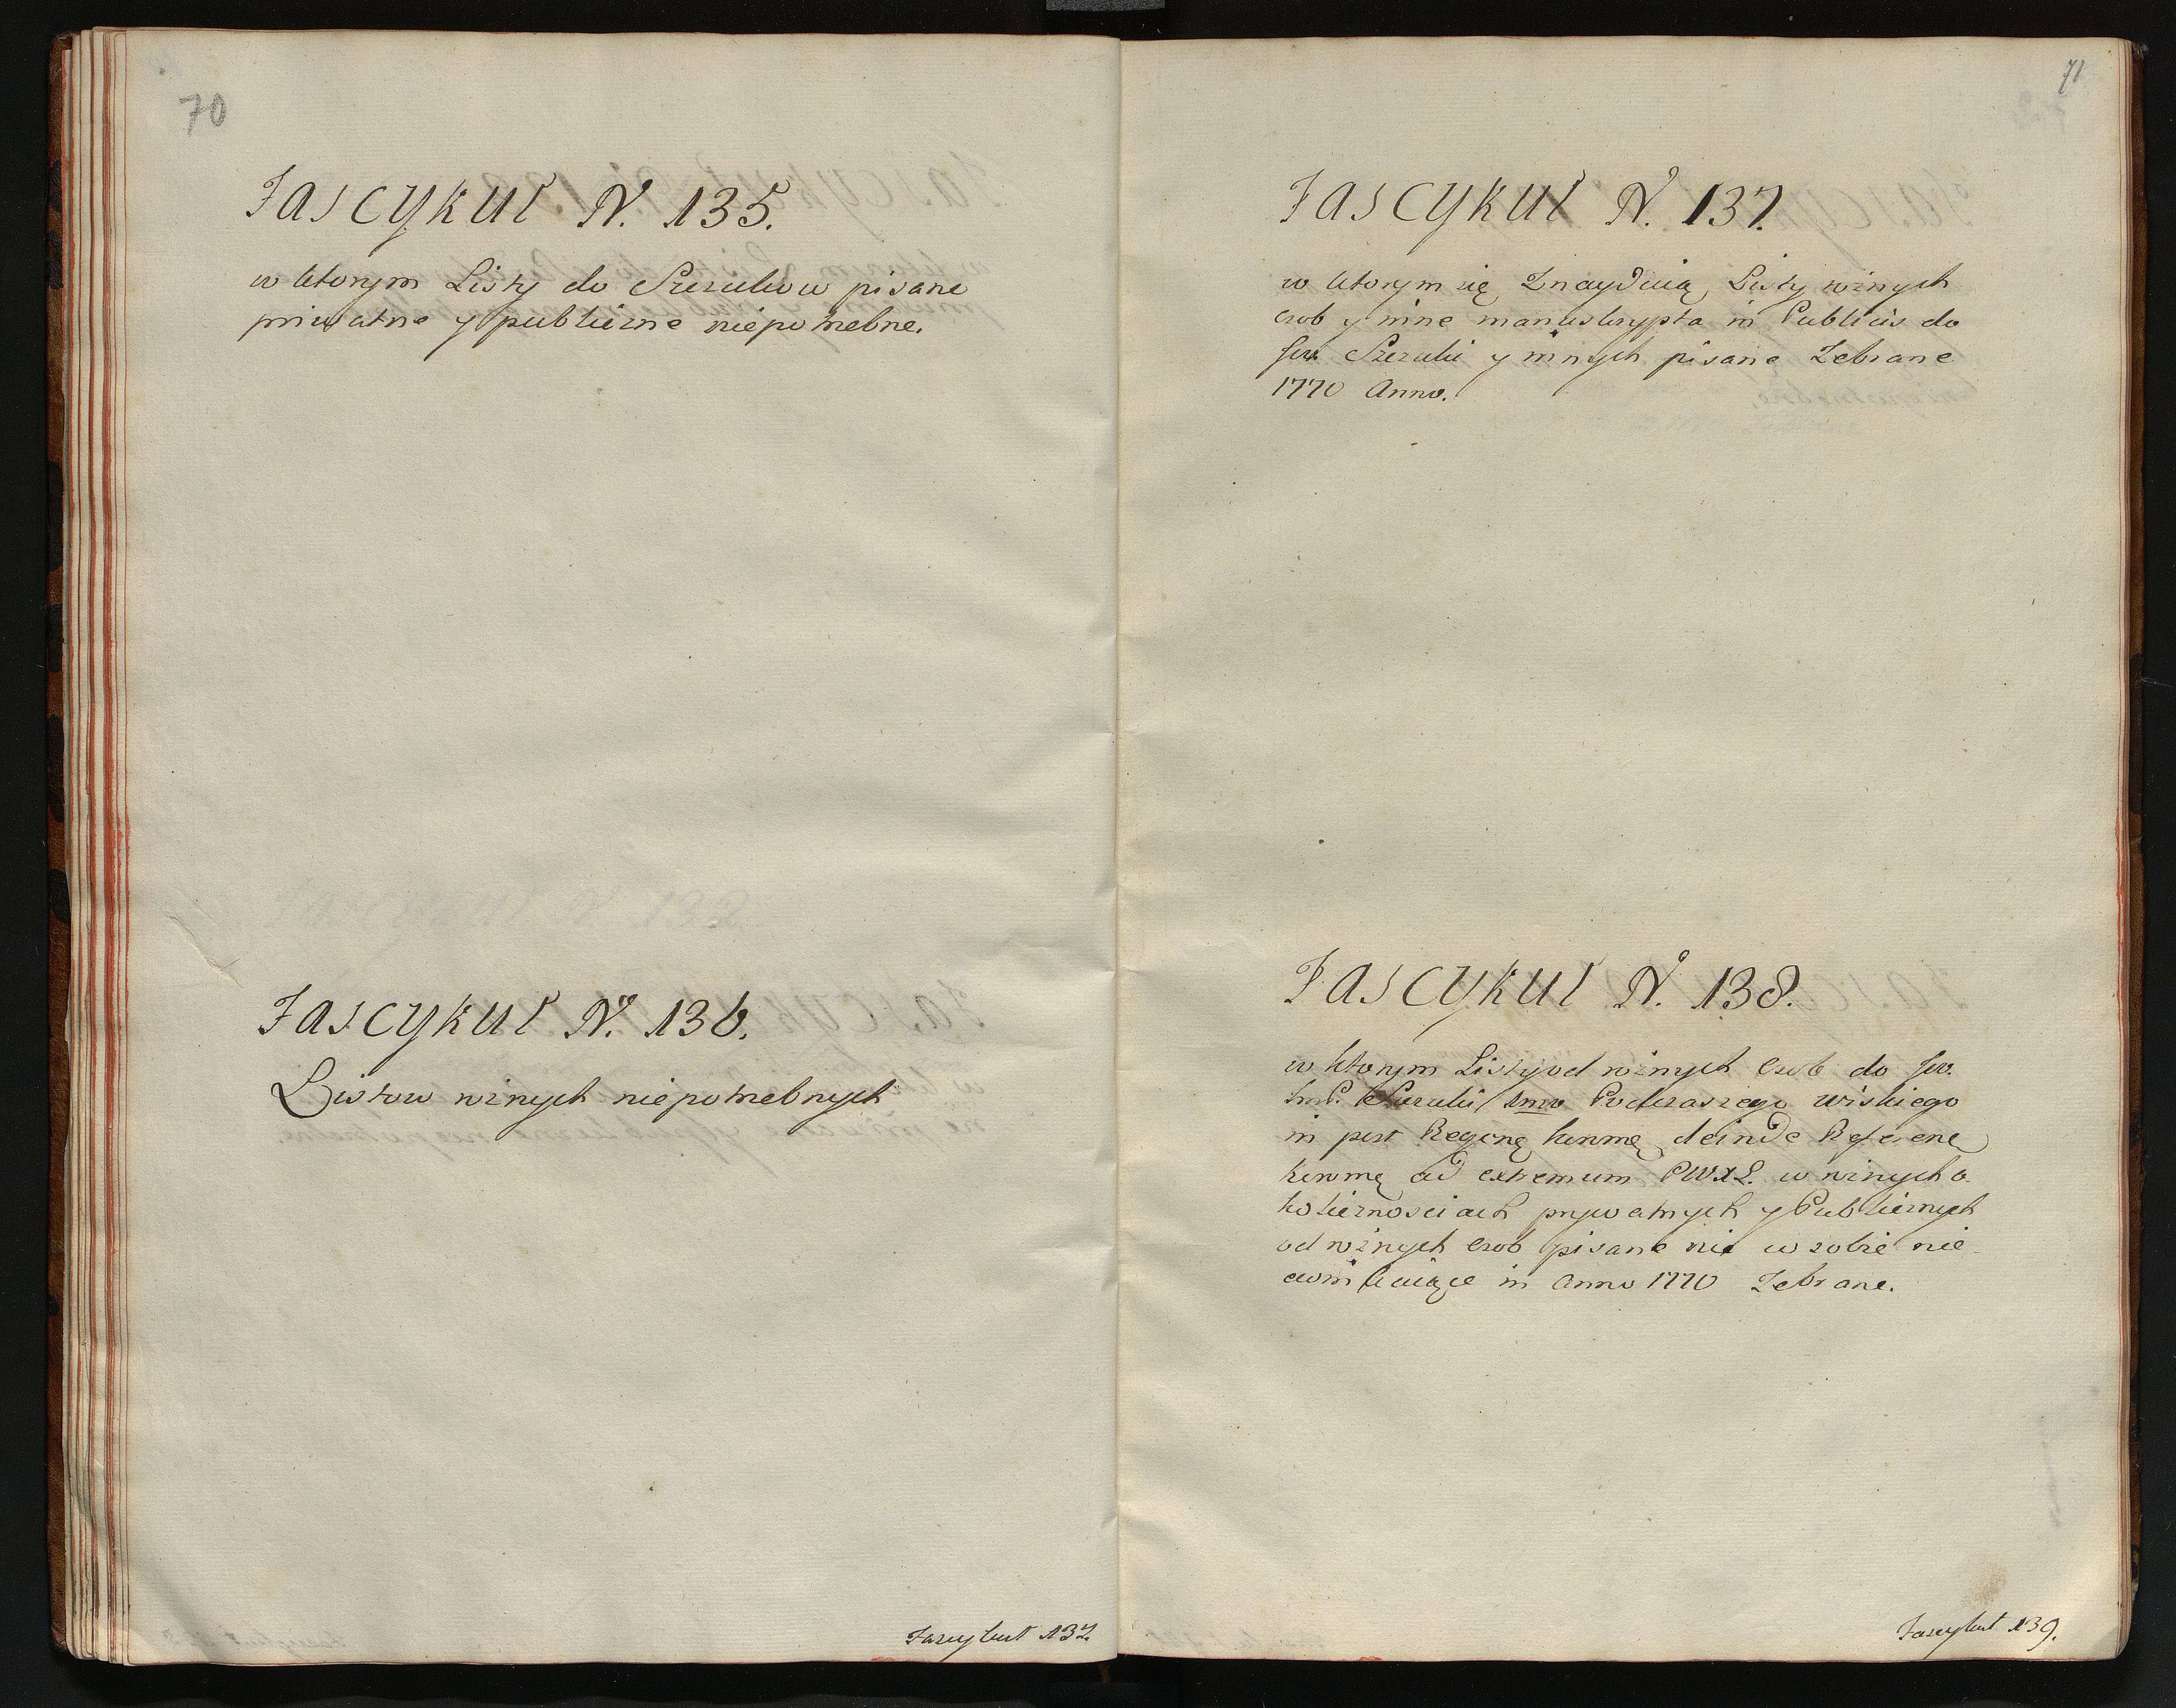 70
Fascykuł N. 135.
w ktorym Listy do Szczuków pisane
priwatne y publiczne niepotrzebne.
Fascykuł N. 136.
Listow roznych niepotrzebnych
Fascykuł 137.
71
Fascykuł N. 137.
w ktorym się Znayduią Listy roznych
osob y inne manuskrypta in Publicis do
Jw. Szczuki y innych pisane Zebrane
1770 Anno.
Fascykuł N. 138.
w ktorym Listy od roznych Osob do Jw.
ImP. Szczuki 1mo Podczaszego wiskiego
in post Regenę kornnę deinde Referenę
koronnę ad extremum PWXL. w roznych o
kolicznosciach prywatnych y Publicznych
od roznych Osob pisane nic w sobie nie
in Anno 1770 Zebrane.
Fascykuł 139.